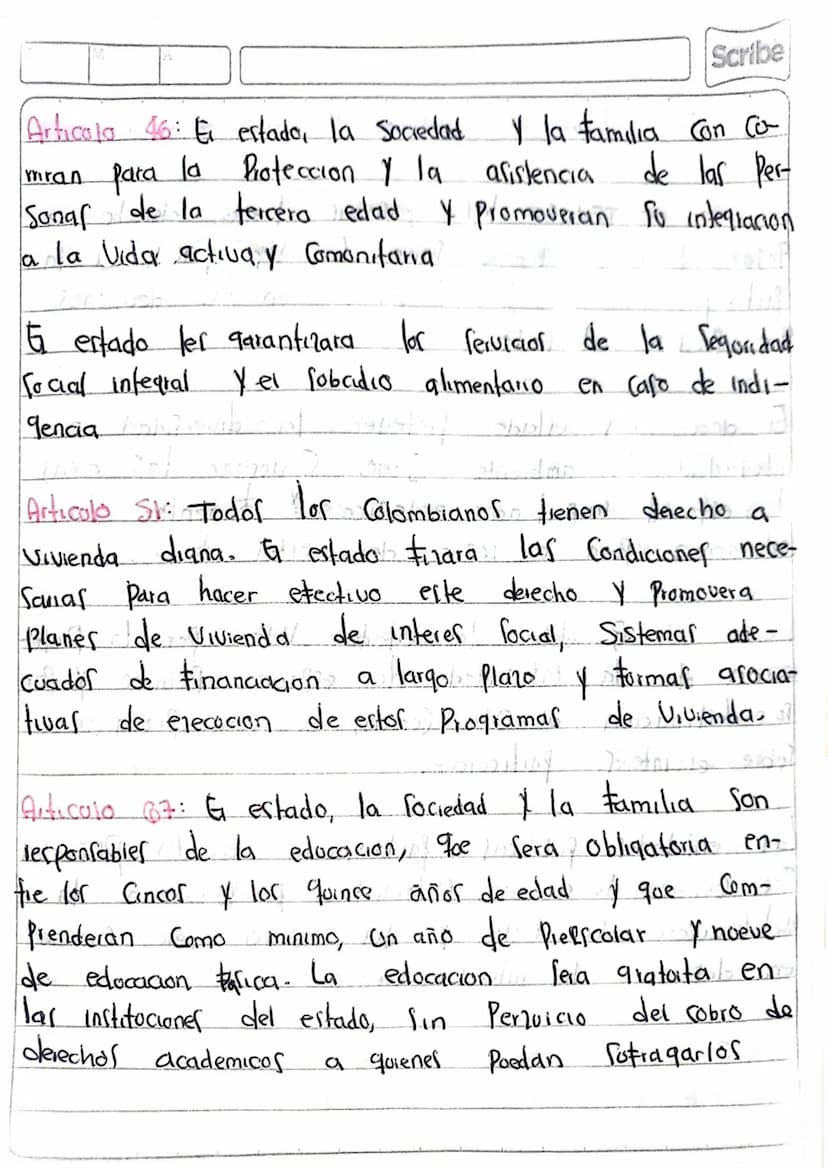 Scribe
Articolo 46: El estado, la Sociedad y la familia con co-
rriran para la Proteccion y la asistencia de las Per-
sonas de la tercera edad y Promoveran su integracion
a la Vida activa y Comonitaria
El estado les garantizara los servicios de la Segoridad
Social integral y el sobcidio alimentario en caso de indi-
gencia
Articolo 51: Todos los Colombianos tienen derecho a
Vivienda digna. El estado fijara las Condiciones nece-
sarias para hacer efectivo este derecho y Promovera
Planes de Vivienda de interes social, Sistemas ade-
cuados de financiacion a largo Plazo y formas asocia-
tivas de ejecocion de estos Programas de Vivienda.
Articolo 67: El estado, la sociedad y la familia son
responsables de la edocacion, qoe sera obligatoria en-
tre los Cincos y los quince años de edad y que Com-
Prenderan Como minimo, un año de Preescolar y noeve
de edocacion basica. La edocacion sera gratoita en
las institociones del estado, sin Perjuicio del cobro de
derechos academicos a quienes Poedan sofragarlos